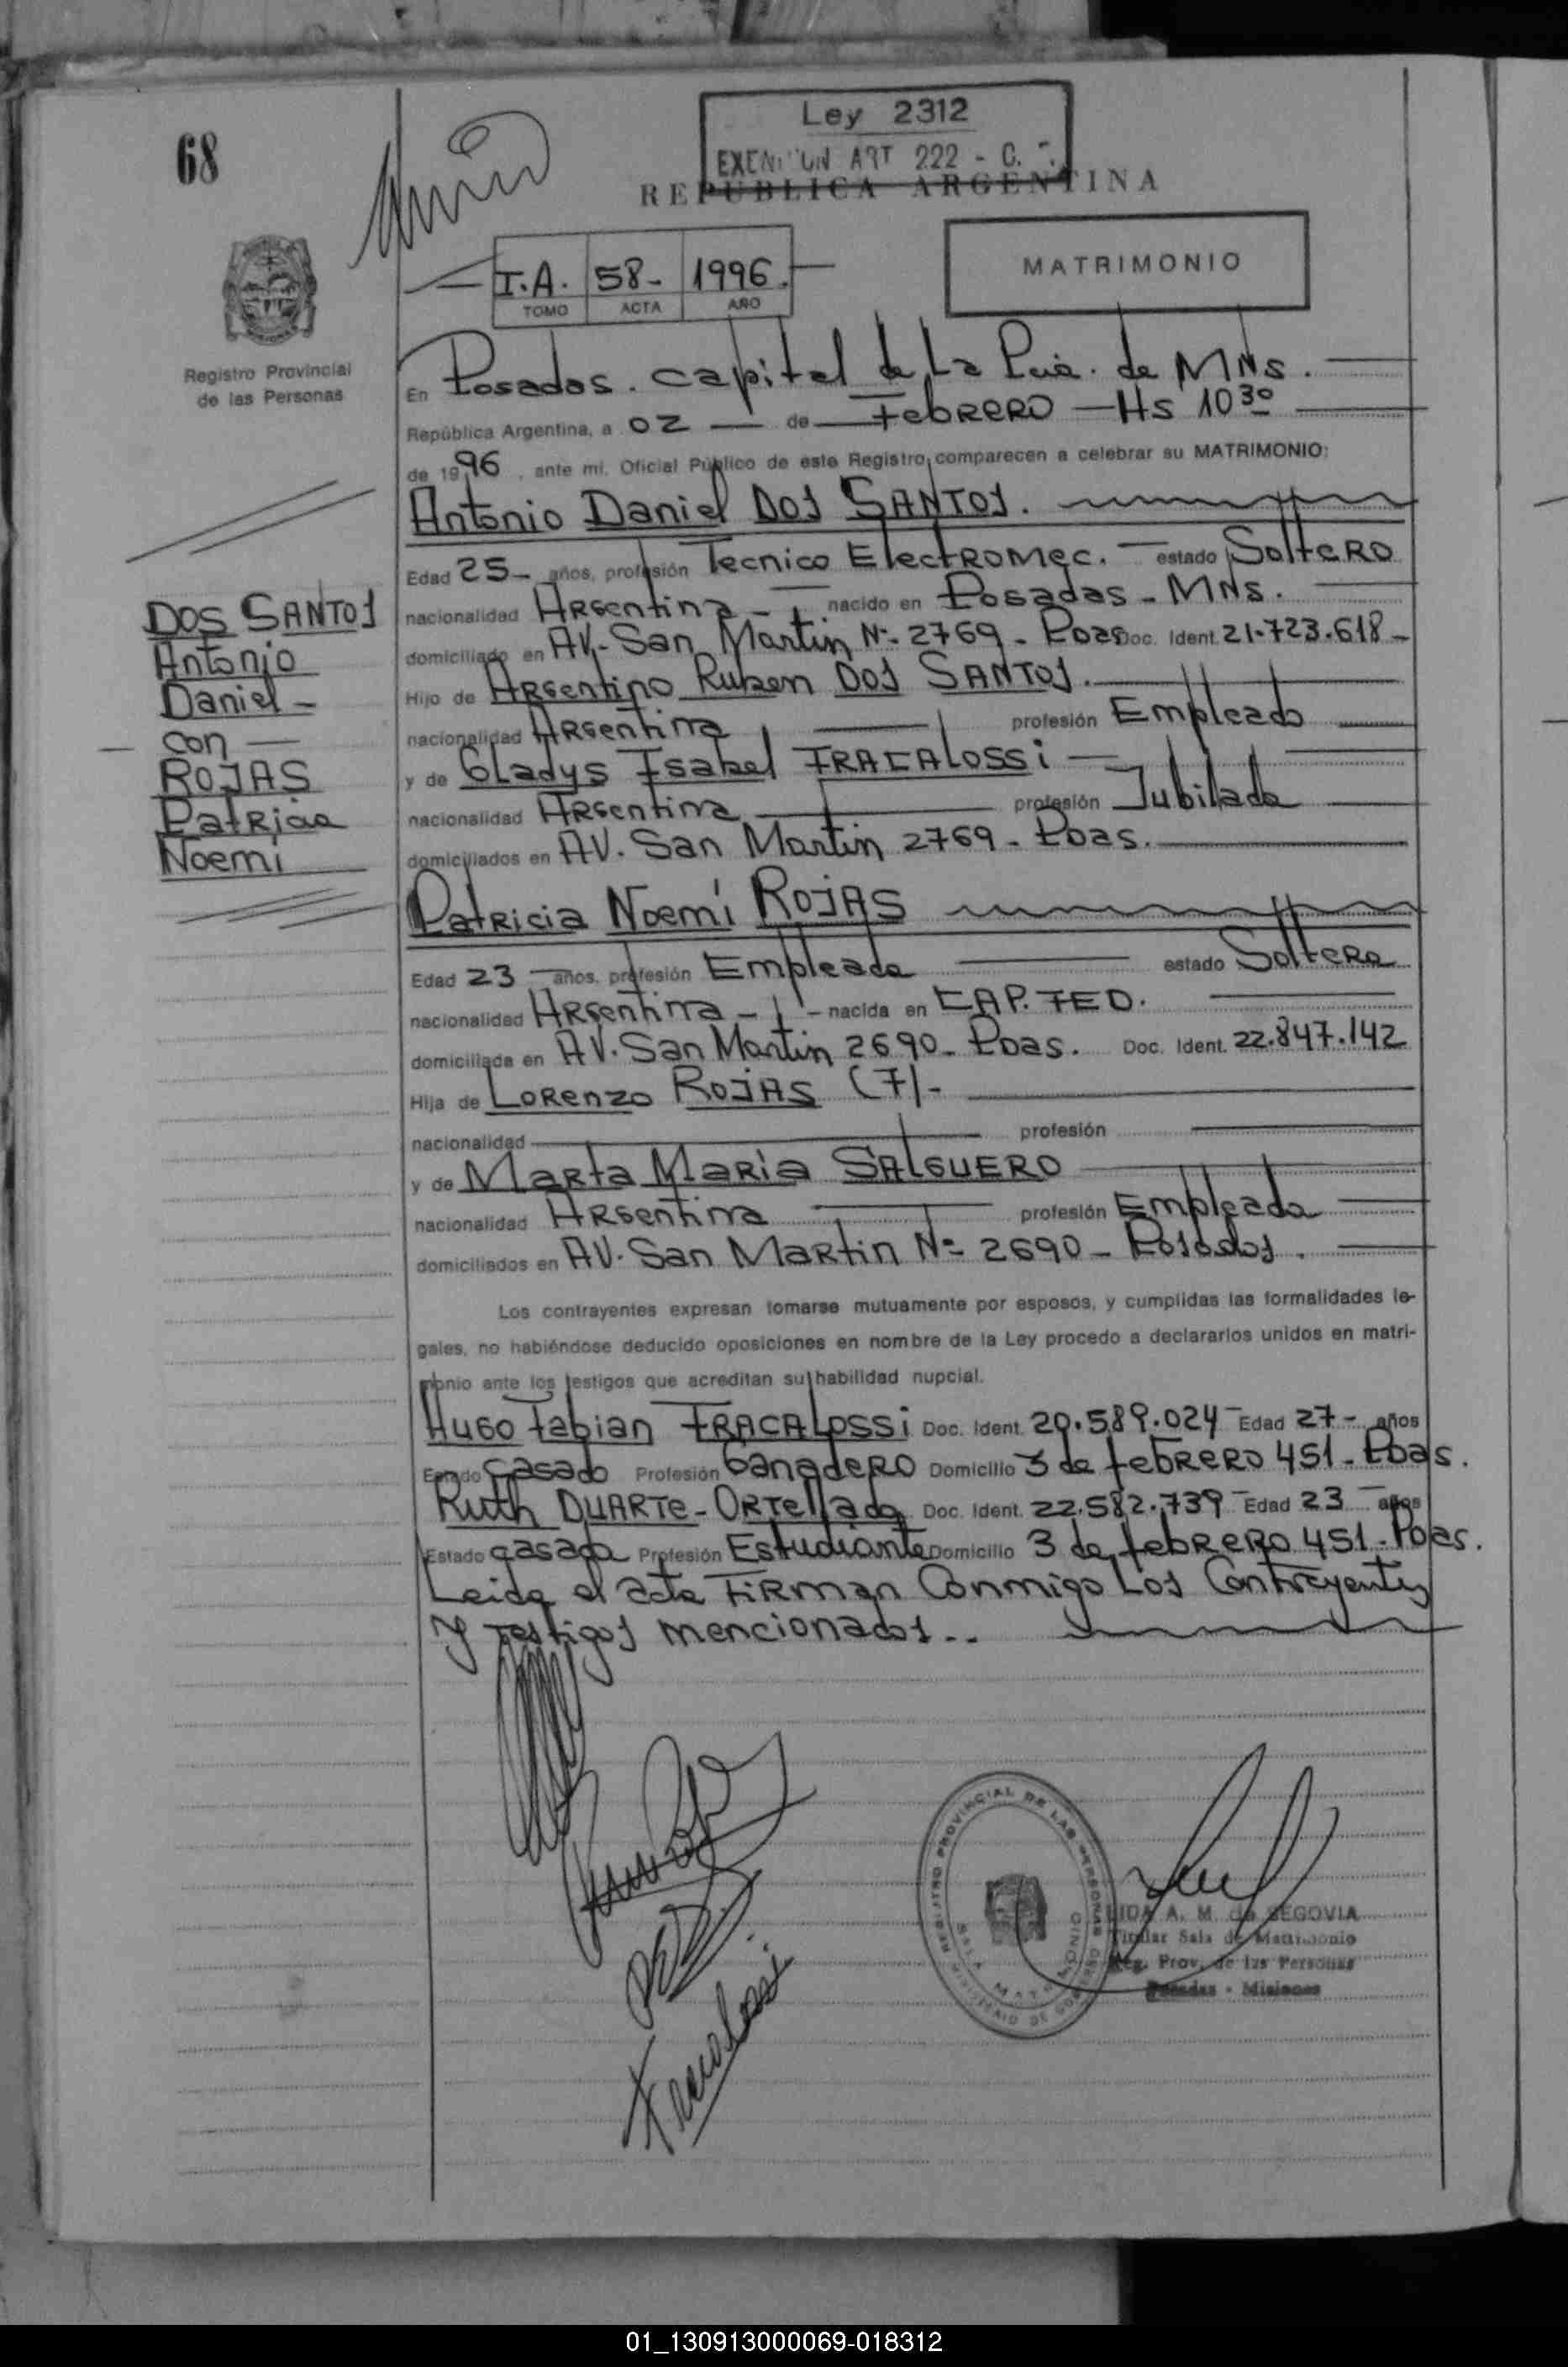 68
Ley 2312
EXENCION ART 222 - C.
REPUBLICA ARGENTINA
T.A. 58- 1996.
TOMO ACTA AÑO
MATRIMONIO
Registro Provincial
de las Personas
En Posadas. capital de La Pcia. de MNS.
República Argentina, a 02 de Febrero - Hs 10 30
de 1996, ante mí, Oficial Público de este Registro, comparecen a celebrar su MATRIMONIO:
Antonio Daniel DOS SANTOS.
Edad 25- años, profesión Tecnico Electromec. estado Soltero
nacionalidad Argentina - nacido en Posadas - MNS.
domiciliado en AV.- San Martin Nº- 2769 - Pdas Doc. Ident. 21.723.618-
Hijo de Argentino Ruben DOS SANTOS.
nacionalidad Argentina profesión Empleado
y de Gladys Isabel FRACALOSSI
nacionalidad Argentina profesión Jubilada
domiciliados en AV. San Martin 2769 - Pdas.
DOS SANTOS
Antonio
Daniel -
- con -
ROJAS
Patricia
Noemi
Patricia Noemí ROJAS
Edad 23 años, profesión Empleada estado Soltera
nacionalidad Argentina - nacida en CAP. FED.
domiciliada en AV. San Martin 2690 - Pdas. Doc. Ident. 22.847.142
Hija de Lorenzo ROJAS (F)-
nacionalidad profesión
y de Marta Maria SALGUERO
nacionalidad Argentina profesión Empleada
domiciliados en AV. San Martin Nº 2690 - Posadas.
Los contrayentes expresan tomarse mutuamente por esposos, y cumplidas las formalidades le-
gales, no habiéndose deducido oposiciones en nombre de la Ley procedo a declararlos unidos en matri-
monio ante los testigos que acreditan su habilidad nupcial.
Hugo Fabian FRACALOSSI Doc. Ident. 20.589.024 Edad 27- años
Estado Casado Profesión Ganadero Domicilio 3 de febrero 451 - Pdas.
Ruth DUARTE - Ortellado Doc. Ident. 22.582.739 Edad 23 años
Estado casada Profesión Estudiante Domicilio 3 de febrero 451 - Pdas.
Leida el acta Firman Conmigo Los Contrayentes
y testigos mencionados..
Fracalossi
REGISTRO PROVINCIAL DE LAS PERSONAS
MINISTERIO DE GOBIERNO
SALA MATRIMONIO
LIDA A. M. de SEGOVIA
Titular Sala de Matrimonio
Reg. Prov. de las Personas
Posadas - Misiones
01_130913000069-018312